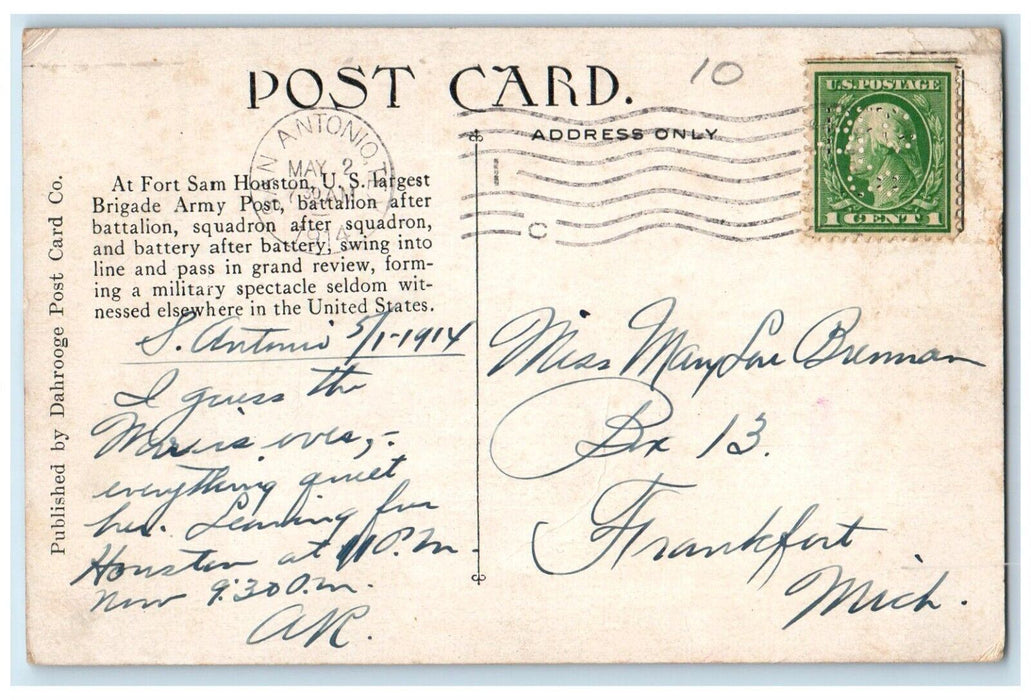 POST CARD.
10
ADDRESS ONLY
U.S. POSTAGE
1 CENT 1
SAN ANTONIO, TEX.
MAY 2
1914
1
C
Published by Dahrooge Post Card Co.
At Fort Sam Houston, U. S. largest
Brigade Army Post, battalion after
battalion, squadron after squadron,
and battery after battery, swing into
line and pass in grand review, form-
ing a military spectacle seldom wit-
nessed elsewhere in the United States.
S. Antonio 5/1-1914
I guess the
War is over, -
everything quiet
her. Leaving for
Houston at 11 P.m.
now 9:30 P.m.
AR.
Miss Mary Lou Brennan
Box 13.
Frankfort
Mich.